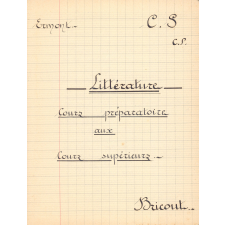 Ermont_ C. S
C.P.
Littérature
Cours préparatoire
aux
Cours supérieurs
Bricout_